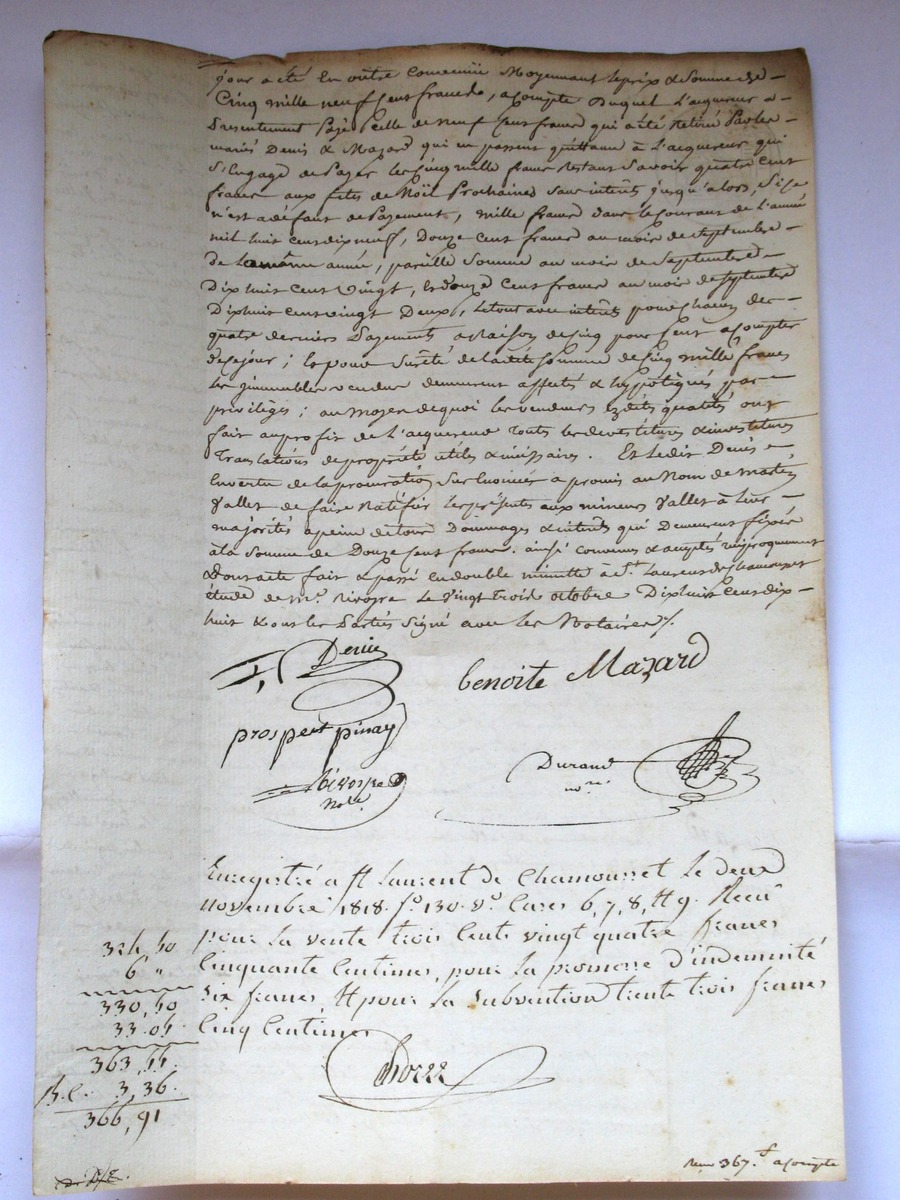 jour a été En outre Convenüe Moyennant le prix & Somme de
Cinq mille neuf Cent francs, a Compte Duquel L'acquereur a
Présentement Payé Celle de neuf Cent francs qui a été Retiré Par les
mariés Denis & Mazard qui en passent quittance à L'acquereur qui
S'Engage de Payer les Cinq mille francs Restant Savoir quatre Cent
francs aux fetes de Noël Prochaines Sans interets jusqu'alors, Si ce
n'est a défaut de Payement, mille francs dans le Courant de L'année
mil huit Cent dix neuf, Douze Cent francs au mois de Septembre
de La même année, pareille Somme au mois de Septembre
Dix huit Cent Vingt, Et douze Cent francs au mois de Septembre
Dix huit Cent vingt Deux, le tout avec interets pour Chacun des
quatre derniers Payements a Raison de Cinq pour Cent a Compter
de ce jour ; Et pour Sureté de la dite Somme de Cinq mille francs
les immeubles vendus demeurent affectés & hypotéqués par
privilèges ; au moyen de quoi les vendeurs Esdits qualités ont
fait au profit de L'acquereur toutes les devestitures & investitures
Translations de propriété utiles & nécessaires. Et Ledit Denis
En vertu de la procuration Sus Enoncée a promis au Nom de
Vallet de faire Ratifiér les présentes aux mineurs Vallet à Leur
majorités a peine de tous Dommages & interets qui Demeurent fixés
à la Somme de Douze Cent francs. ainsi convenu & accepté réciproquement
& Dont acte fait & passé en double minutte à St Laurent de Chamousset
étude de Me. Rivoyre Le Vingt trois octobre Dix huit Cent dix
huit & ont les Parties Signé avec les Notaires /.
Denis
benoite Mazard
prospert pinay
Durand
nore
Notre
Enregistré a St Laurent de Chamousset le deux
novembre 1818. fo 130. vo Cases 6, 7, 8, Et 9. Recu
pour la vente trois Cents vingt quatre francs
Cinquante Centimes, pour la promesse d'indemnité
Six francs, Et pour la Subvention trente trois francs
Cinq Centimes
324,50
6 "
330,50
33.05
363,55
3,36.
366,91
Reçu 367.f a Compte